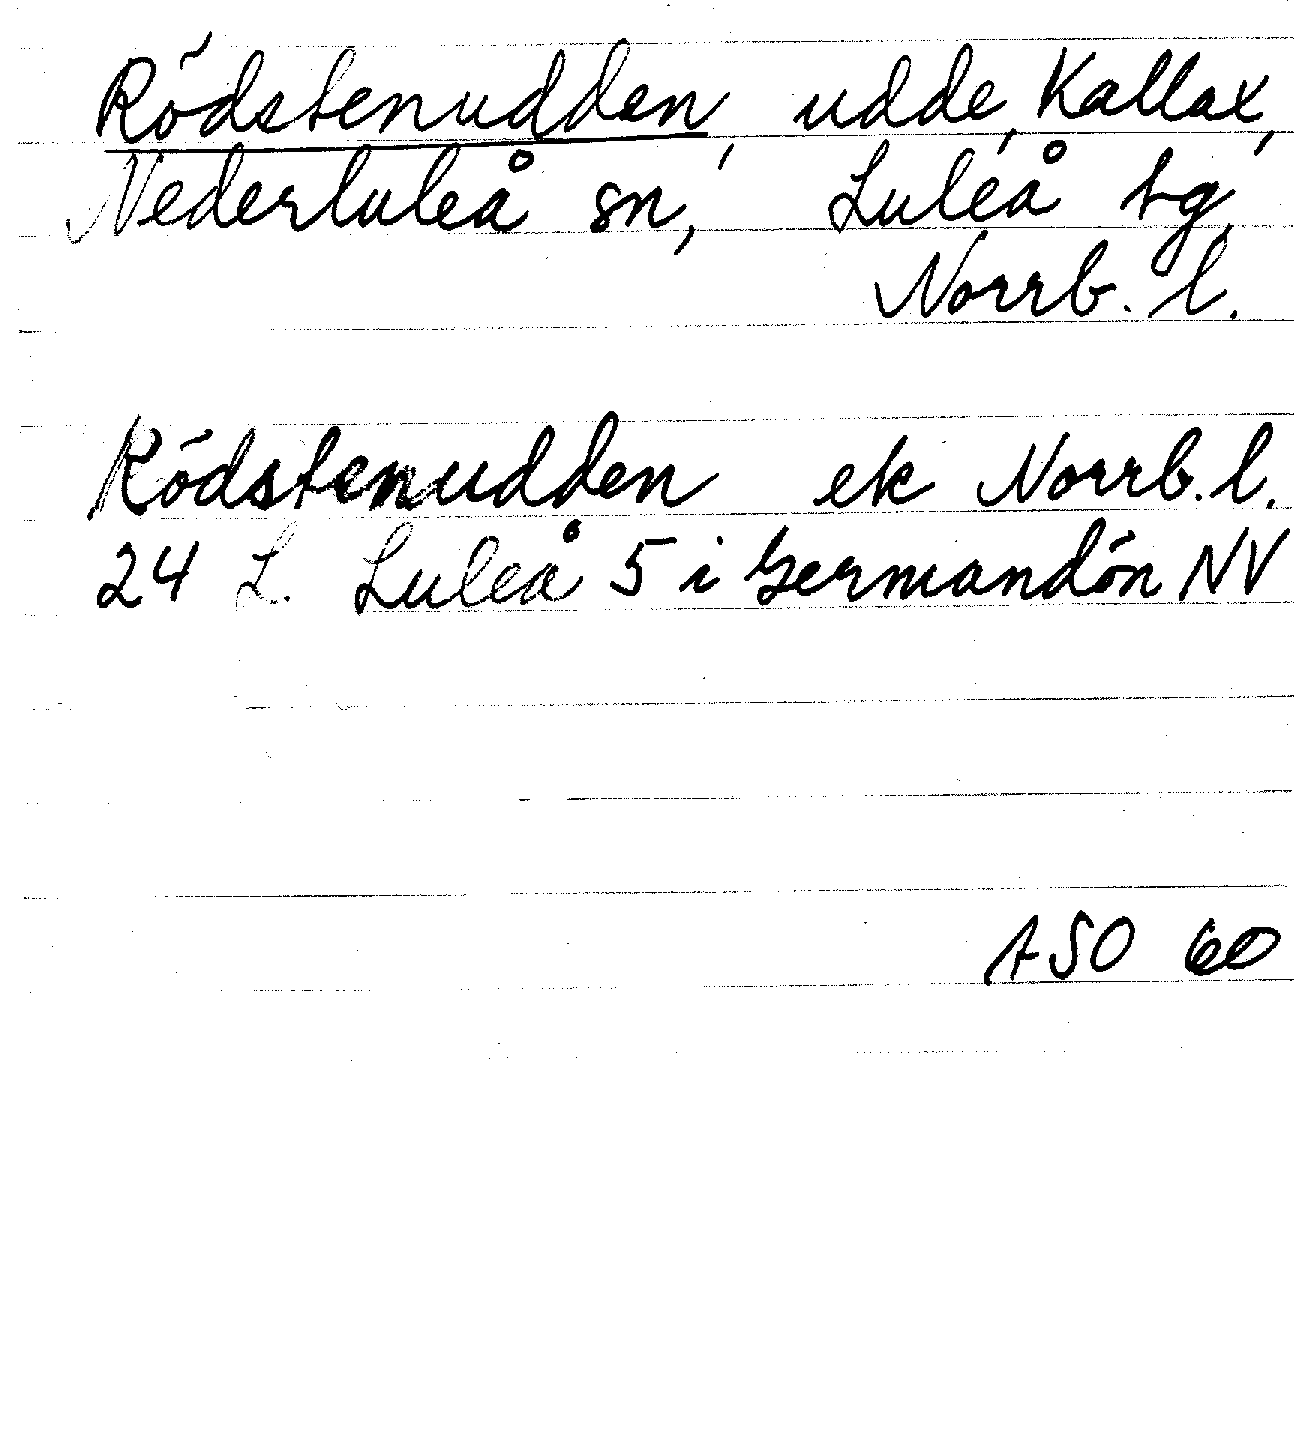 Rödstenudden, udde, Kallax,
Nederluleå sn, Luleå tg,
Norrb. l.
Rödstenudden ek Norrb. l.
24 L. Luleå 5 i Germandön NV
ASO 60